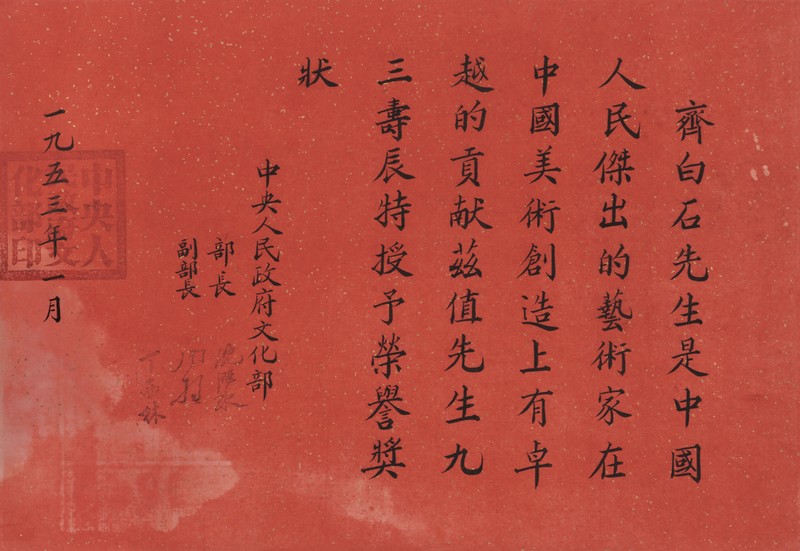 齊白石先生是中國
人民傑出的藝術家在
中國美術創造上有卓
越的貢献茲值先生九
三壽辰特授予榮譽奬
狀
中央人民政府文化部
部長
副部長
丁西林
一九五三年一月
中央人
民政府文
化部印